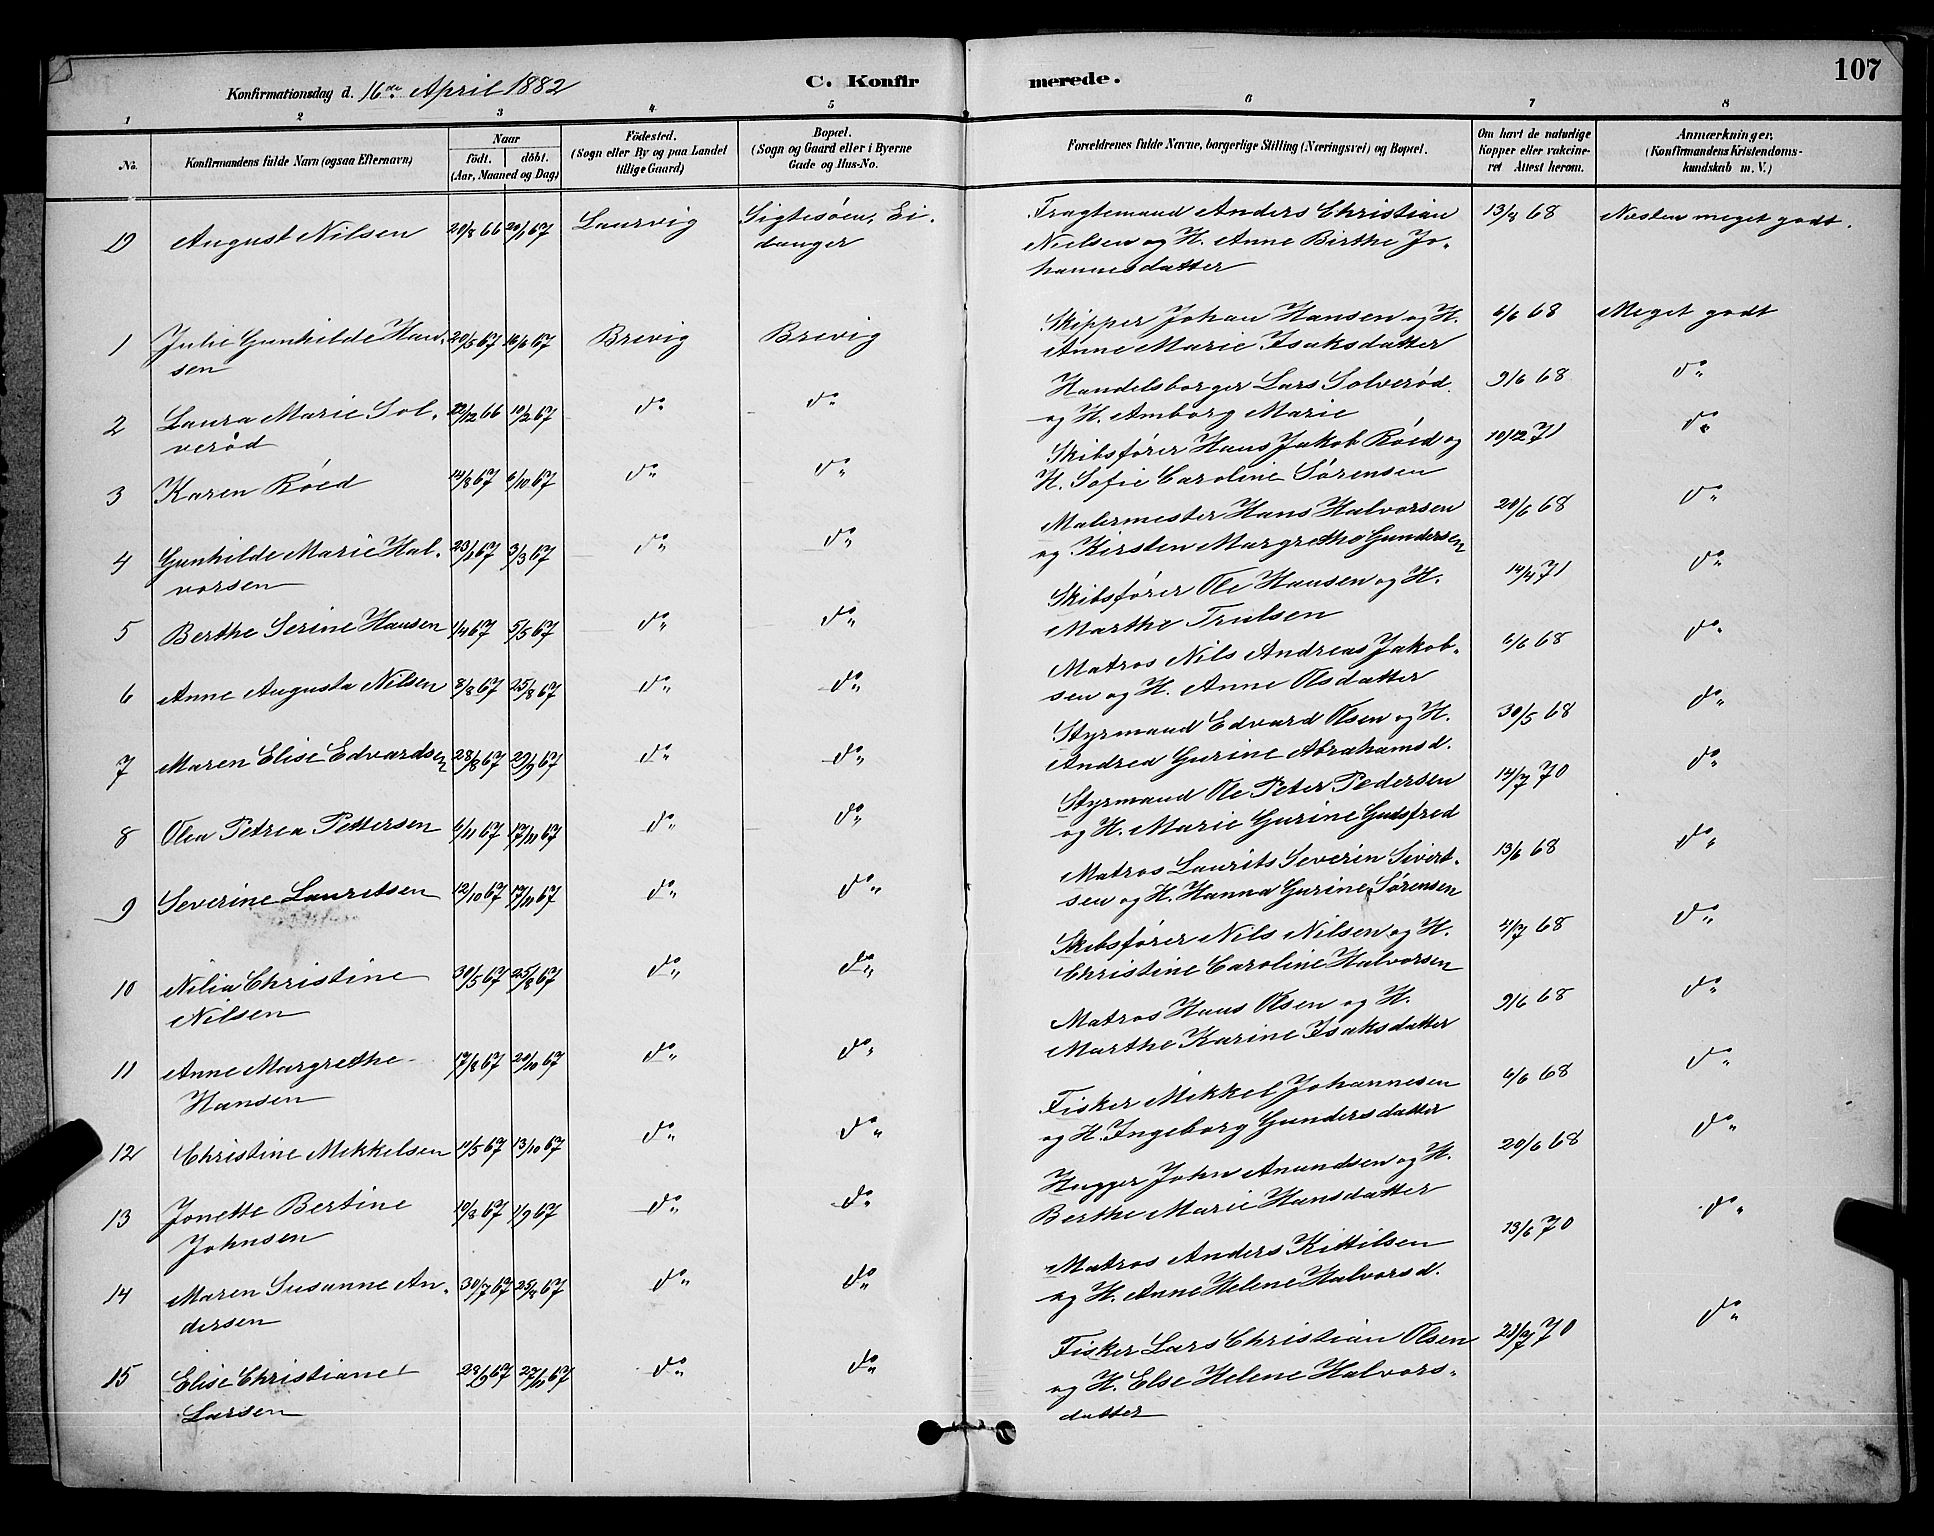 107
Konfirmationsdag d. 16de April 1882 C. Konfirmerede.
1 2 3 4 5 6 7 8
No. Konfirmandens fulde Navn (ogsaa Efternavn) Naar födt. döbt. (Aar, Maaned og Dag) Födested. (Sogn eller By og paa Landet tillige Gaard) Bopæl. (Sogn og Gaard eller i Byerne Gade og Hus-No. Forældrenes fulde Navne, borgerlige Stilling (Næringsvei) og Bopæl. Om havt de naturlige Kopper eller vakcineret Attest herom. Anmærkninger. (Konfirmandens Kristendomskundskab m. V.)
19 August Nilsen 20/8 66 20/1 67 Laurvig Sigtesöen, Ei-
danger
Fragtemand Anders Christian 13/8 68 Næsten meget godt.
Nielsen og H. Anne Birthe Jo-
hannesdatter
1 Julie Gunhilde Han- 20/5 67 16/6 67 Brevig Brevig
sen
Skipper Johan Hansen og H. 6/6 68 Meget godt
Anne Marie Isaksdatter
2 Laura Marie Sol- /12 66 10/2 67 do do
verød
Handelsborger Lars Solverød 9/6 68 do
og H. Amborg Marie
3 Karen Röed 14/8 67 6/10 67 do do
Skibsförer Hans Jakob Röed og 10/12 71 do
H. Sofie Caroline Sørensen
4 Gunhilde Marie Hal- 23/1 67 3/3 67 do do
vorsen
Malermester Hans Halvorsen 20/6 68 do
og Kirsten Margrethe Gundersen
5 Berthe Serine Hansen 1/4 67 5/5 67 do do
Skibsförer Ole Hansen og H. 14/4 71 do
Marthe Trulsen
6 Anne Augusta Nilsen 8/8 67 25/8 67 do do
Matros Nils Andreas Jakob- 6/6 68 do
sen og H. Anne Olsdatter
7 Maren Elise Edvardsen 28/8 67 29/9 67 do do
Styrmand Edvard Olsen og H. 30/5 68 do
Andrea Gurine Abrahamsd.
8 Olea Petrea Pettersen 6/11 67 17/11 67 do do
Styrmand Ole Peter Pedersen 14/7 70 do
og H. Marie Gurine Gudsfred
9 Severine Lauritsen 12/10 67 17/11 67 do do
Matros Laurits Severin Sivert- 13/6 68 do
sen og H. Hanna Gurine Sørensen
10 Nilia Christine 30/5 67 25/8 67 do do
Nilsen
Skibsförer Nils Nilsen og H. 4/7 68 do
Christine Caroline Halvorsen
11 Anne Margrethe 17/8 67 20/10 67 do do
Hansen
Matros Hans Olsen og H. 9/6 68 do
Marthe Karine Isaksdatter
12 Christine Mikkelsen 11/5 67 13/10 67 do do
Fisker Mikkel Johannesen 6/6 68 do
og H. Ingeborg Gundersdatter
13 Jonette Bertine 19/8 67 1/9 67 do do
Johnsen
Hugger John Anundsen og H. 20/6 68 do
Berthe Marie Hansdatter
14 Maren Susanne An- 30/7 67 25/8 67 do do
dersen
Matros Anders Kittilsen 13/6 70 do
og H. Anne Helene Halvorsd.
15 Elise Christiane 29/9 67 27/11 67 do do
Larsen
Fisker Lars Christian Olsen 70 do
og H. Else Helene Halvors-
datter